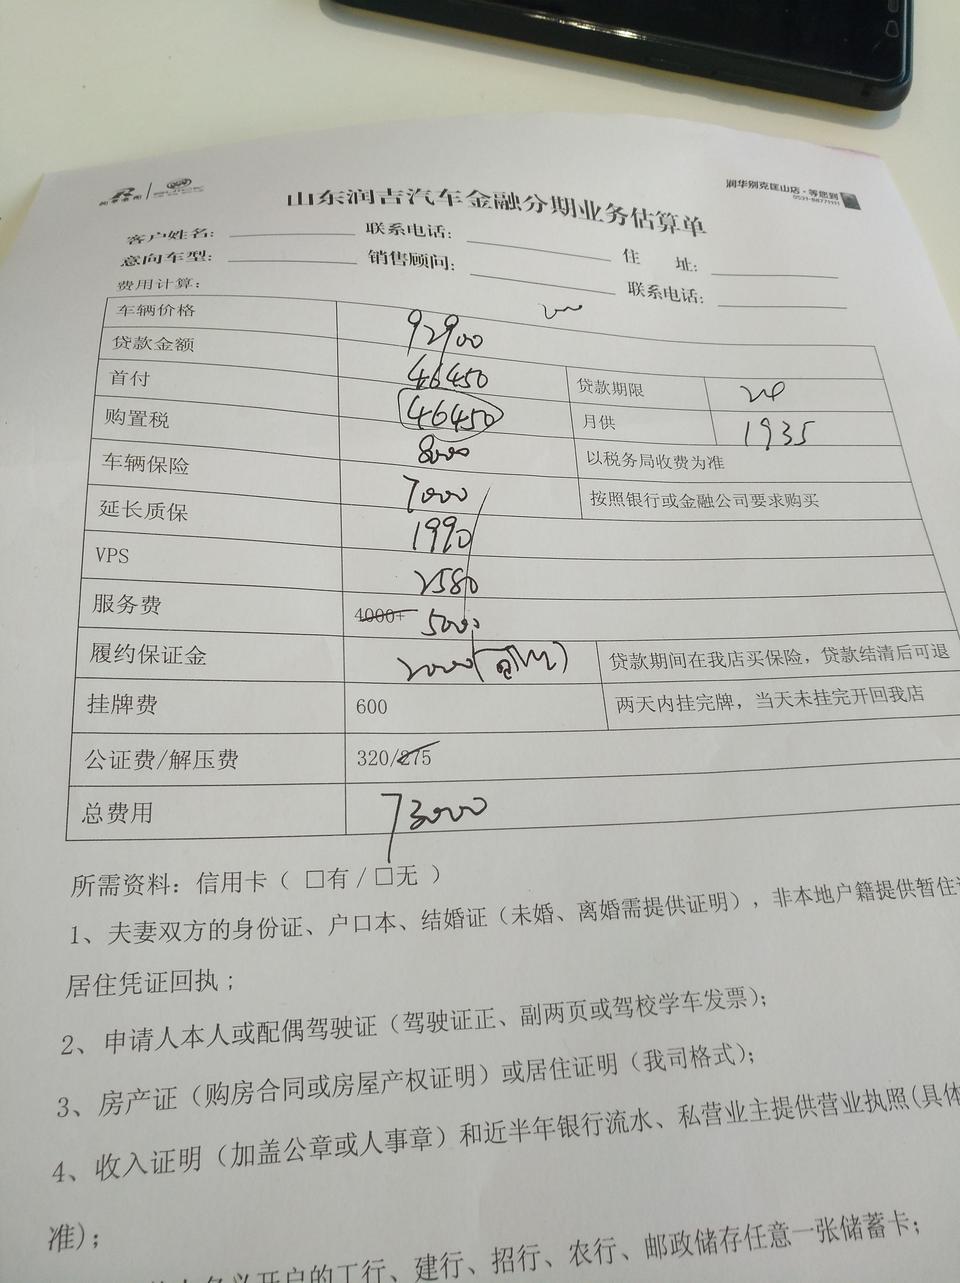 润华别克匡山店·等您到
0531-88777111
山东润吉汽车金融分期业务估算单
客户姓名： 联系电话： 住 址：
意向车型： 销售顾问： 联系电话：
费用计算：
车辆价格 92900
贷款金额 46450 贷款期限 24
首付 46450 月供 1935
购置税 8000 以税务局收费为准
车辆保险 7000 按照银行或金融公司要求购买
延长质保 1990
VPS 2580
服务费 4000+ 5000
履约保证金 2000 贷款期间在我店买保险，贷款结清后可退
挂牌费 600 两天内挂完牌，当天未挂完开回我店
公证费/解压费 320/275
总费用 73000
所需资料：信用卡（ □有 / □无 ）
1、夫妻双方的身份证、户口本、结婚证（未婚、离婚需提供证明），非本地户籍提供暂住
居住凭证回执；
2、申请人本人或配偶驾驶证（驾驶证正、副两页或驾校学车发票）；
3、房产证（购房合同或房屋产权证明）或居住证明（我司格式）；
4、收入证明（加盖公章或人事章）和近半年银行流水、私营业主提供营业执照(具体
准）；
名义开户的工行、建行、招行、农行、邮政储存任意一张储蓄卡；